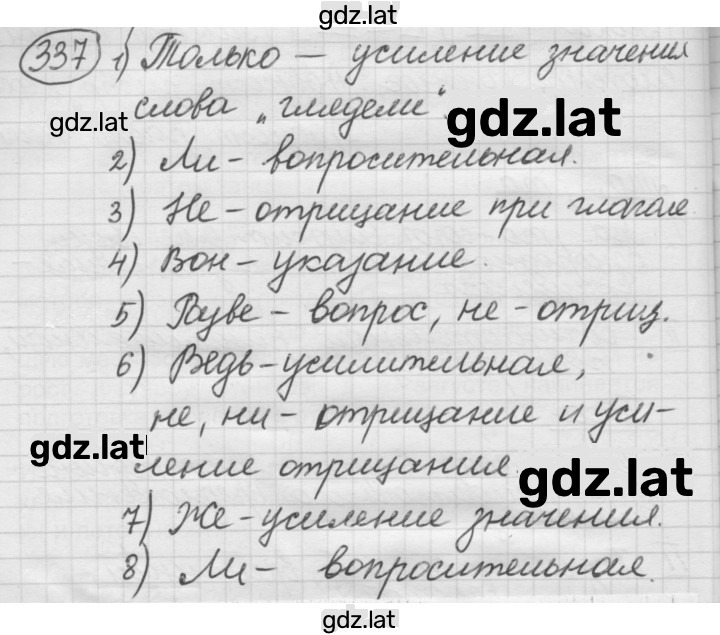 gdz.lat
337 1) Только — усиление значения
слова „глядели".
gdz.lat
gdz.lat
2) Ли - вопросительная.
3) Не - отрицание при глаголе
4) Вон - указание.
5) Разве - вопрос, не - отриц.
6) Ведь - усилительная,
не, ни - отрицание и уси-
gdz.lat
ление отрицания
gdz.lat
7) Же - усиление значения.
8) Ли - вопросительная.
gdz.lat